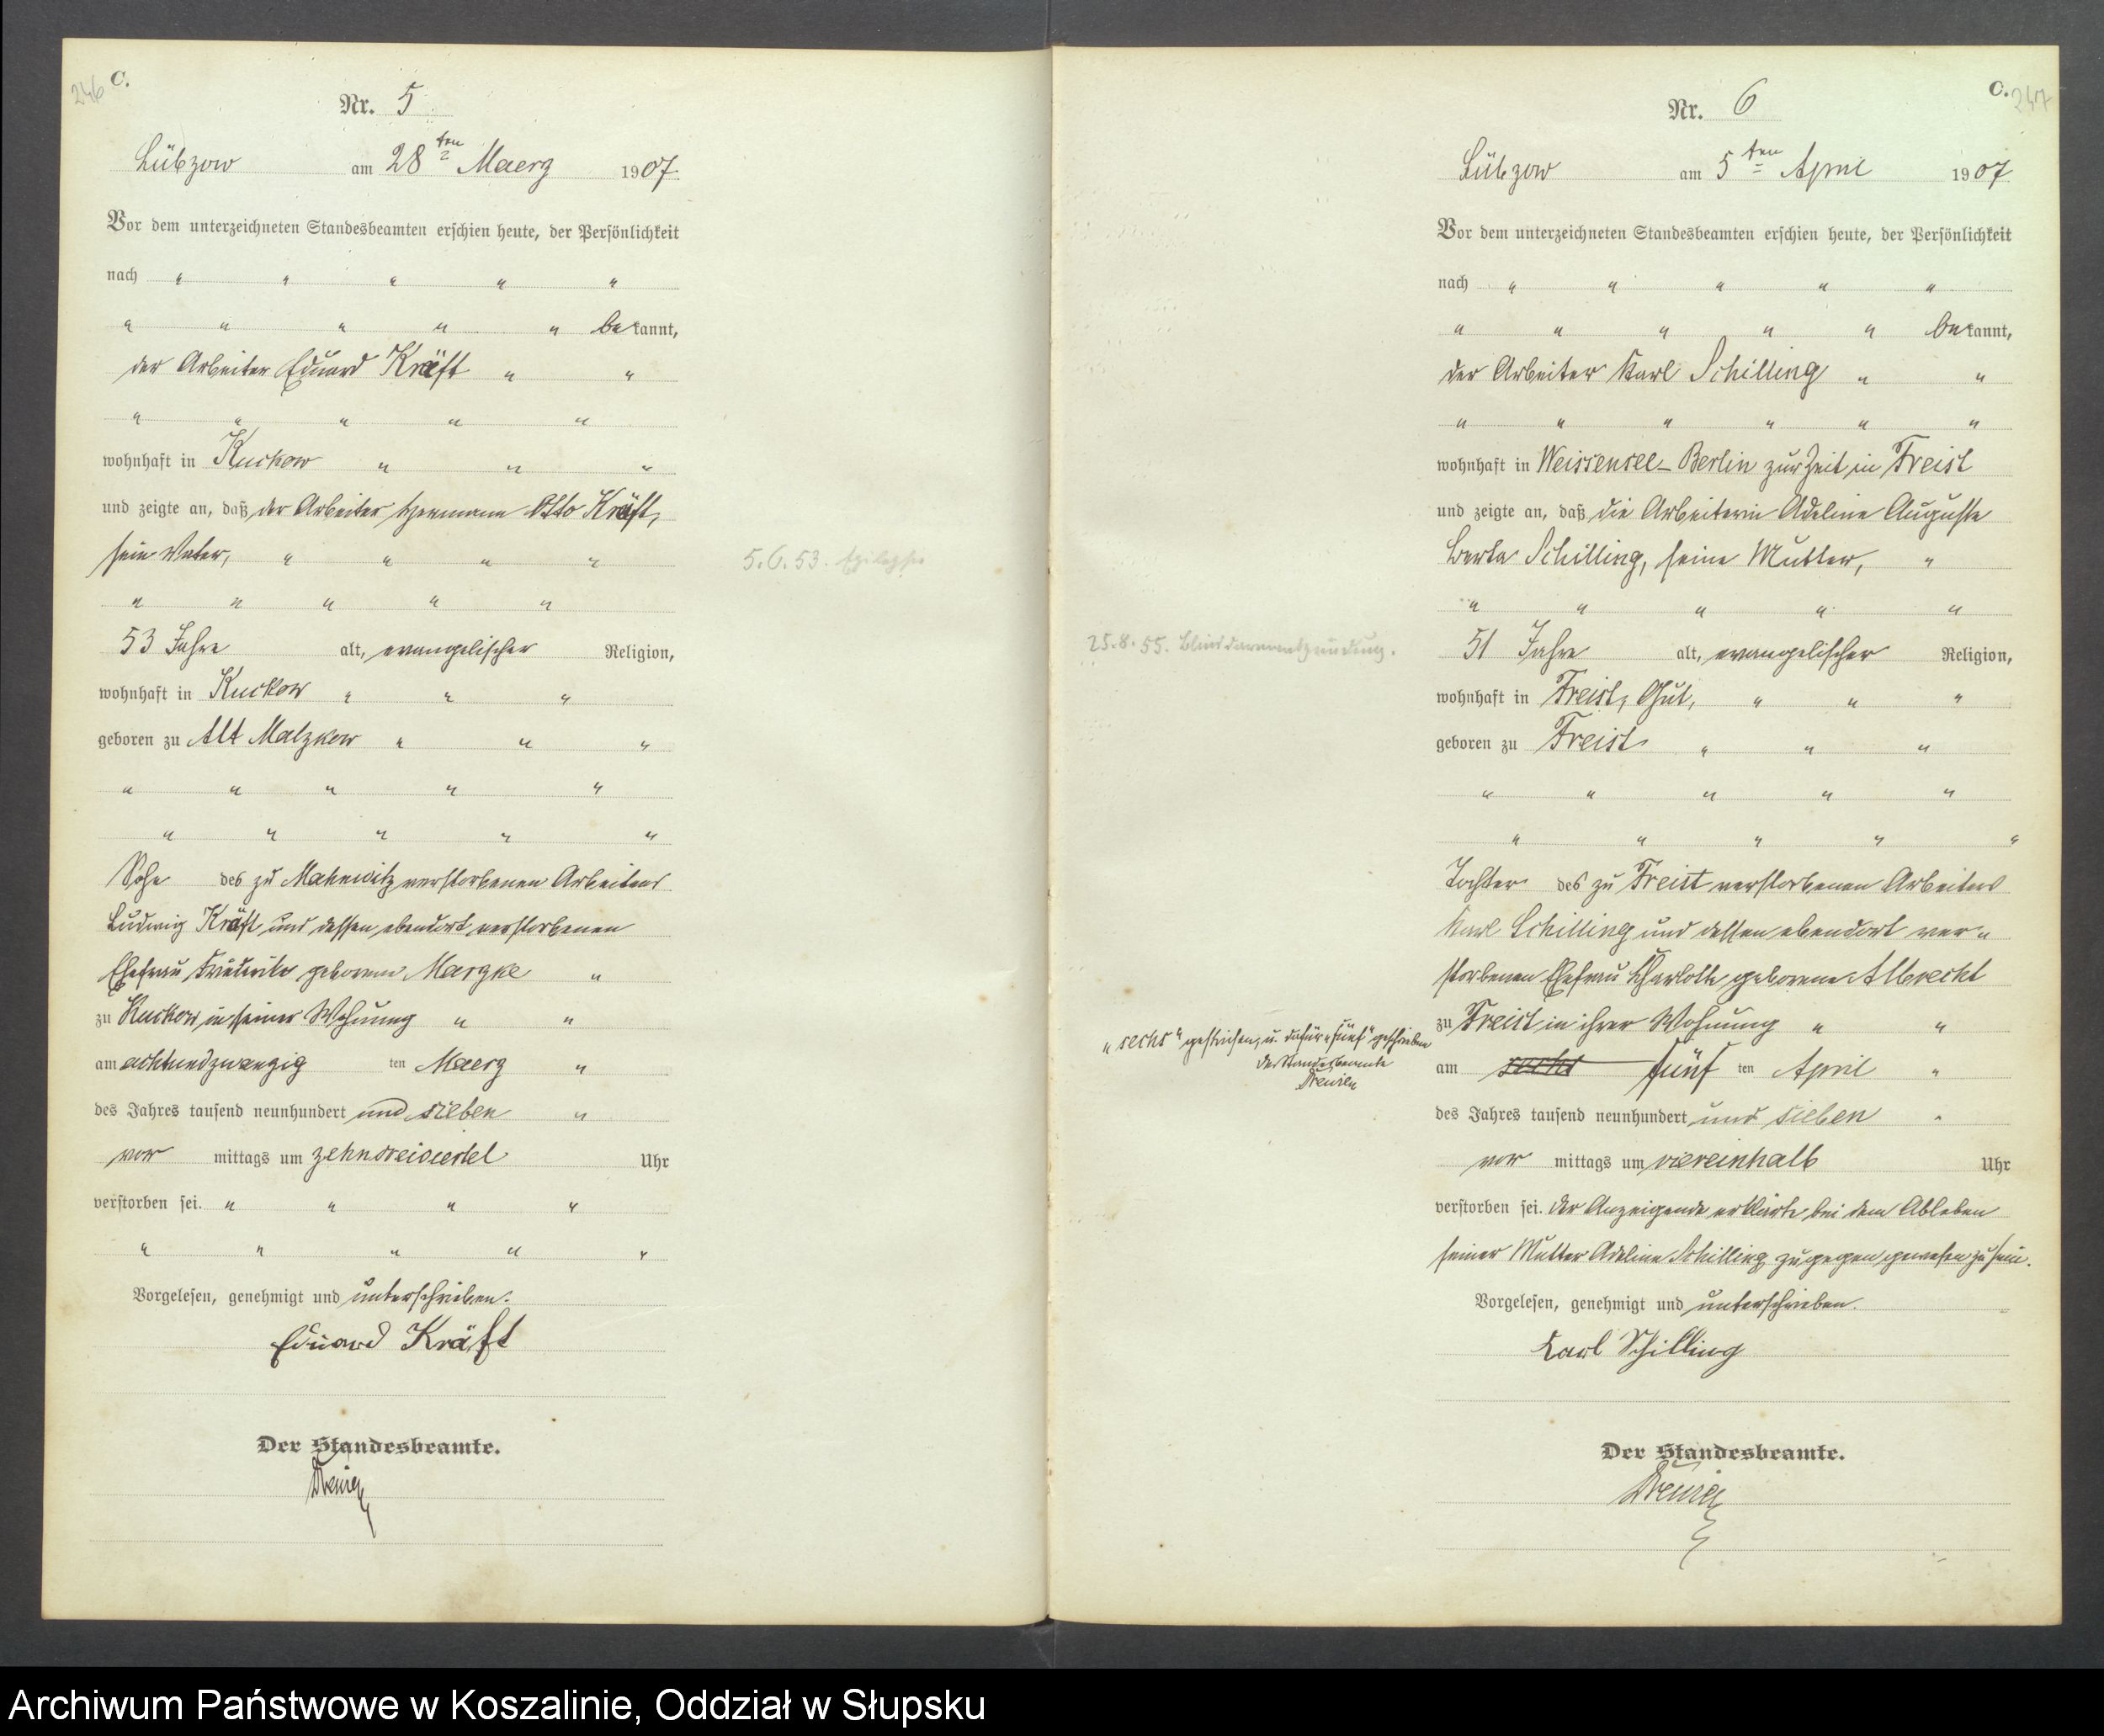 246 C.
Nr. 5
Lübzow am 28ten Maerz 1907.
Vor dem unterzeichneten Standesbeamten erschien heute, der Persönlichkeit
nach " " " " "
" " " " " bekannt,
der Arbeiter Eduard Kräft " "
" " " " "
wohnhaft in Kuckow " " "
und zeigte an, daß der Arbeiter Hermann Otto Kräft,
sein Vater, " " " "
" " " " "
53 Jahre alt, evangelischer Religion,
wohnhaft in Kuckow " " "
geboren zu Alt Malzkow " " "
" " " " "
" " " " "
Sohn des zu Mahnwitz verstorbenen Arbeiters
Ludwig Kräft und dessen ebendort verstorbenen
Ehefrau Friederike geborene Marzke "
zu Kuckow in seiner Wohnung " "
am achtundzwanzig ten Maerz "
des Jahres tausend neunhundert und sieben "
vor mittags um zehndreiviertel Uhr
verstorben sei. " " " "
" " " " "
Vorgelesen, genehmigt und unterschrieben.
Eduard Kräft
Der Standesbeamte.
5.6.53. Epilepsie
C. 247
Nr. 6
Lübzow am 5ten April 1907
Vor dem unterzeichneten Standesbeamten erschien heute, der Persönlichkeit
nach " " " " "
" " " " " bekannt,
der Arbeiter Karl Schilling " "
" " " " " "
wohnhaft in Weissensee-Berlin zur Zeit in Freist
und zeigte an, daß die Arbeiterin Adeline Auguste
Berta Schilling, seine Mutter, "
" " " " "
25.8.55. Blinddarmentzündung.
51 Jahre alt, evangelischer Religion,
wohnhaft in Freist, Gut, " " "
geboren zu Freist " " "
" " " " "
" " " " "
Tochter des zu Freist verstorbenen Arbeiters
Karl Schilling und dessen ebendort ver"
storbenen Ehefrau Charlotte geborene Albrecht
zu Freist in ihrer Wohnung " "
"sechs" gestrichen, u. dafür "fünf" geschrieben
Der Standesbeamte
am sechs fünf ten April "
des Jahres tausend neunhundert und sieben "
vor mittags um viereinhalb Uhr
verstorben sei. Der Anzeigende erklärte, bei dem Ableben
seiner Mutter Adeline Schilling zugegen gewesen zu sein.
Vorgelesen, genehmigt und unterschrieben.
Karl Schilling
Der Standesbeamte.
Archiwum Państwowe w Koszalinie, Oddział w Słupsku